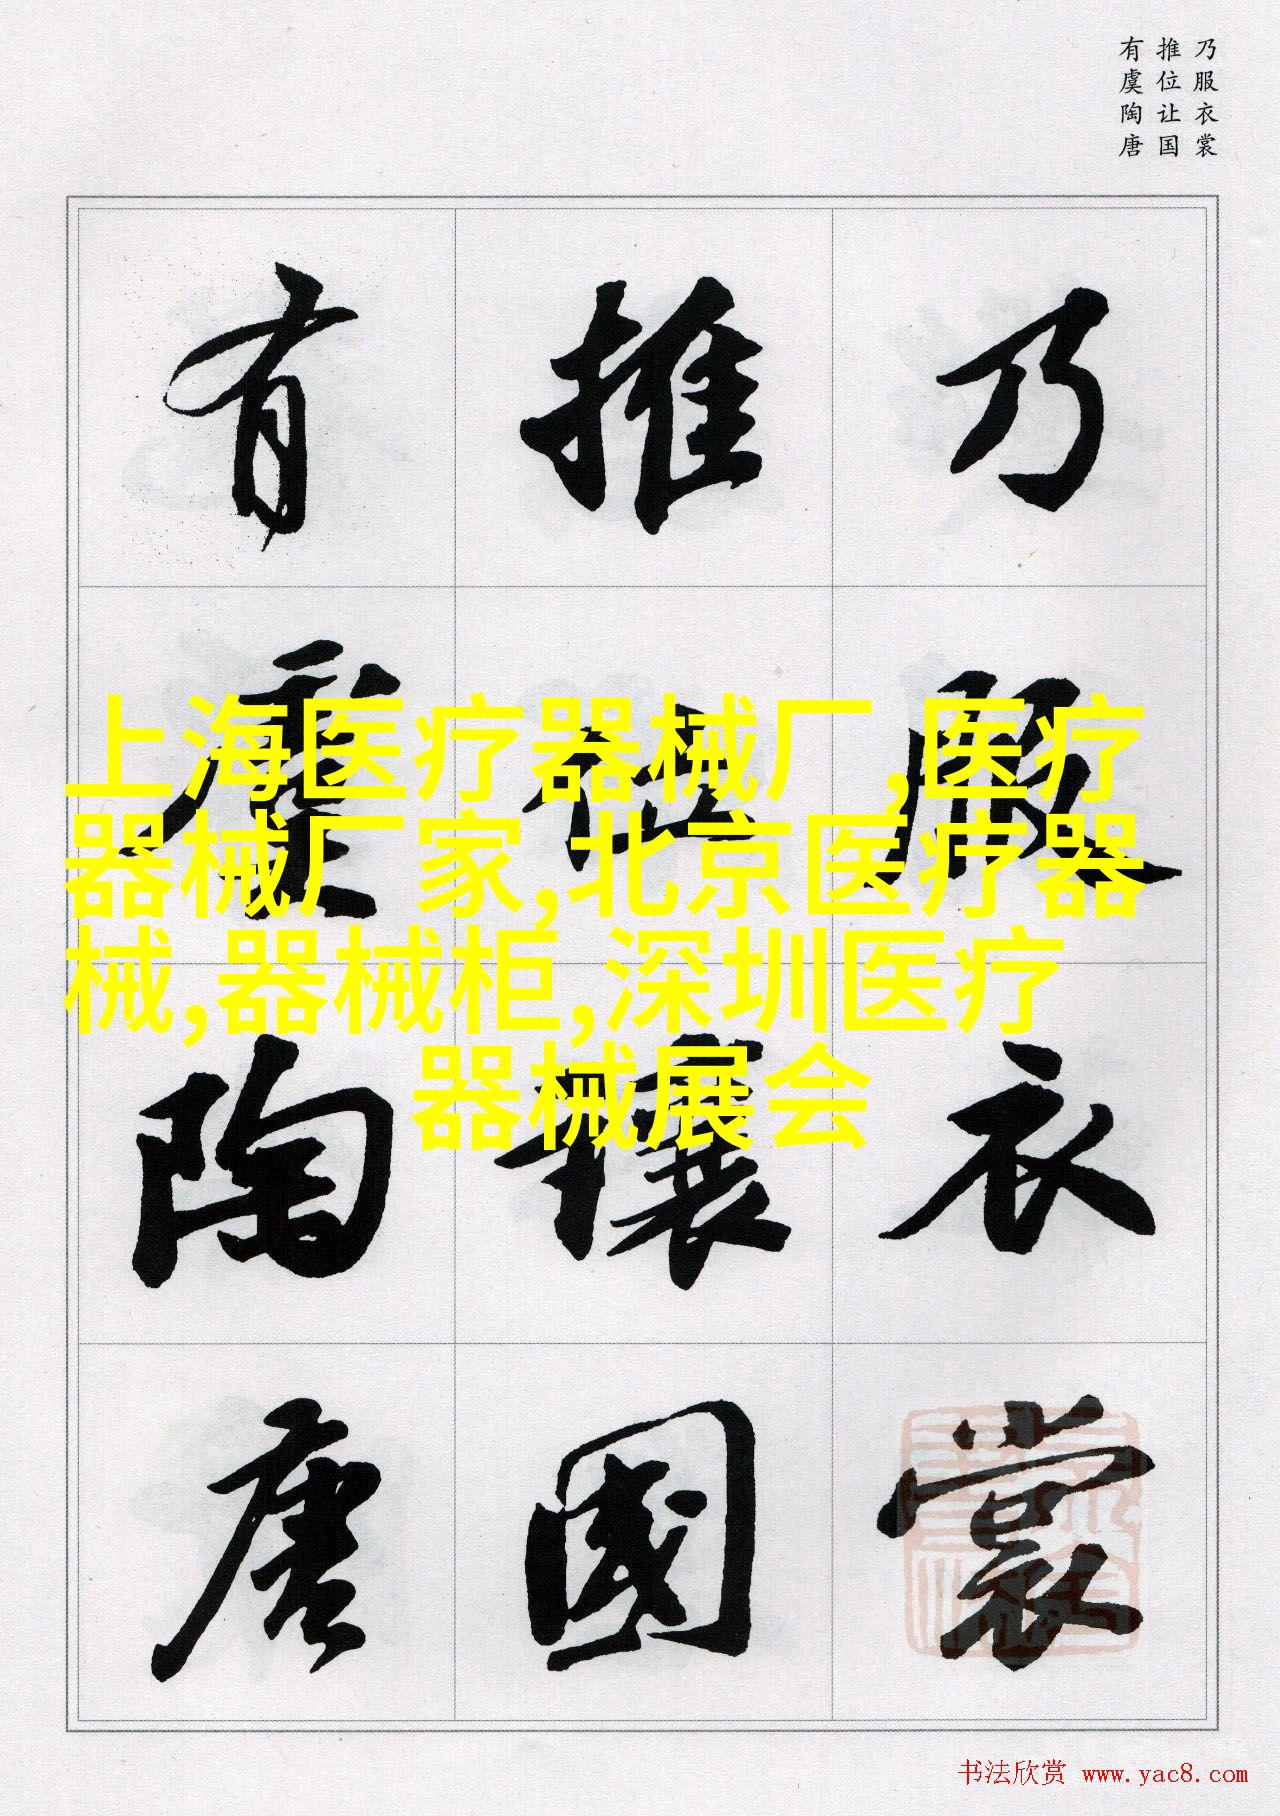 乃服衣裳
推位让国
有虞陶唐
乃服衣裳
推位讓國
有虞陶唐
上海医疗器械厂,医疗
器械厂家,北京医疗器
械,器械柜,深圳医疗
器械展会
书法欣赏 www.yac8.com